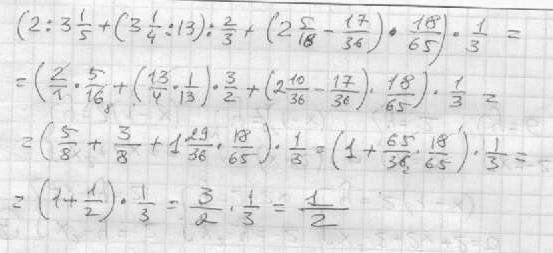 (2 : 3 1/5 + (3 1/4 : 13) : 2/3 + (2 5/18 - 17/36) · 18/65) · 1/3 =
= (2/1 · 5/16 8 + (13/4 · 1/13) · 3/2 + (2 10/36 - 17/36) · 18/65) · 1/3 =
= (5/8 + 3/8 + 1 29/36 · 18/65) · 1/3 = (1 + 65/36 2 · 18/65) · 1/3 =
= (1 + 1/2) · 1/3 = 3/2 · 1/3 = 1/2